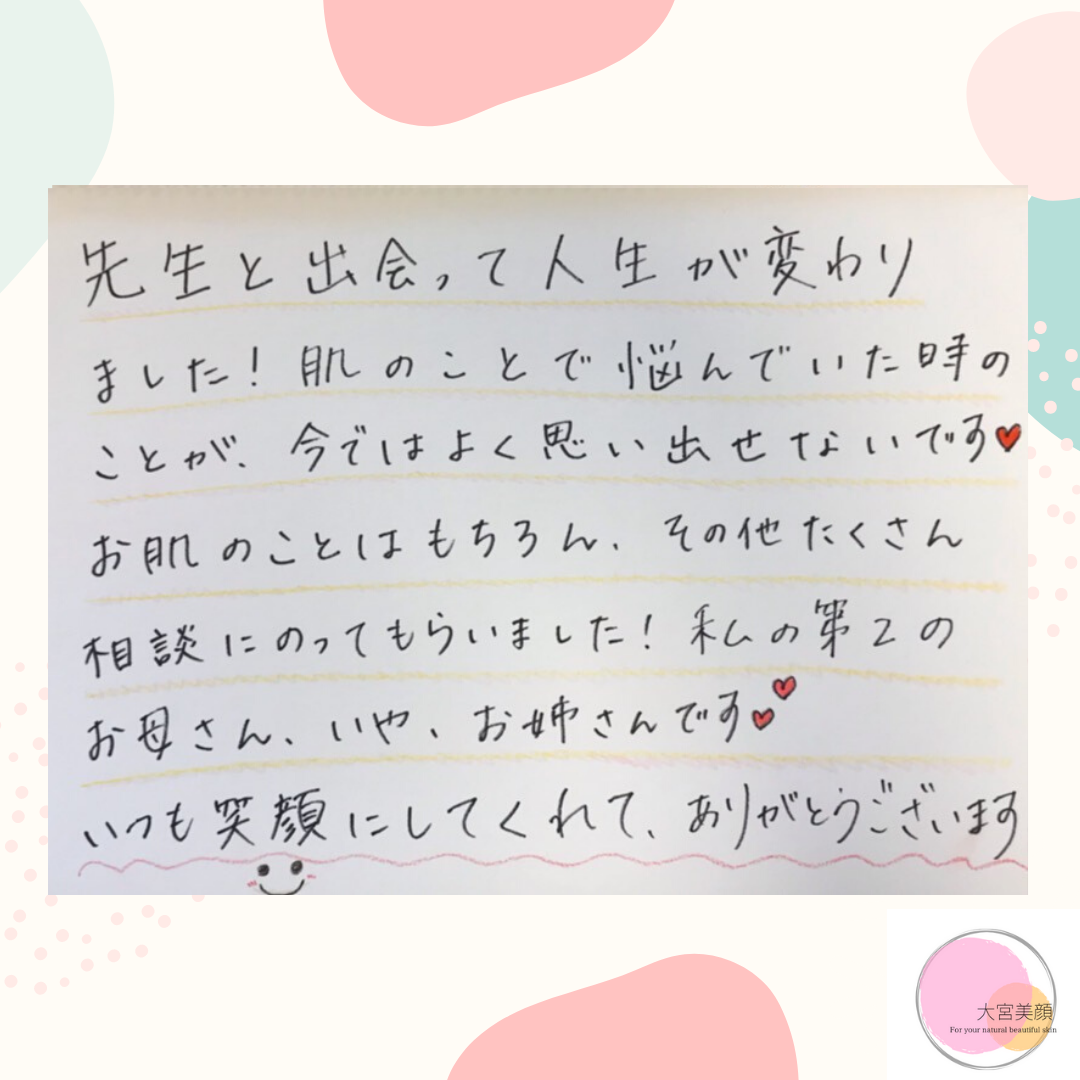 先生と出会って人生が変わり
ました！肌のことで悩んでいた時の
ことが、今ではよく思い出せないです♥
お肌のことはもちろん、その他たくさん
相談にのってもらいました！私の第2の
お母さん、いや、お姉さんです♥♥
いつも笑顔にしてくれて、ありがとうございます
大宮美顔
For your natural beautiful skin